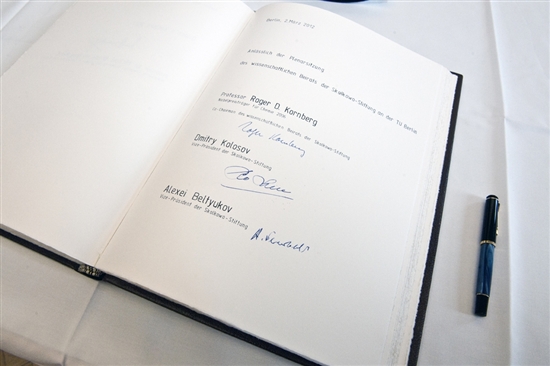 Berlin, 2. März 2012
anlässlich der Plenarsitzung
des wissenschaftlichen Beirats der Skolkowo-Stiftung an der TU Berlin
Professor Roger D. Kornberg
Nobelpreisträger für Chemie 2006
Co-Chairman des wissenschaftlichen Beirats der Skolkowo-Stiftung
Roger Kornberg
Dmitry Kolosov
Vize-Präsident der Skolkowo-Stiftung
Alexei Beltyukov
Vize-Präsident der Skolkowo-Stiftung